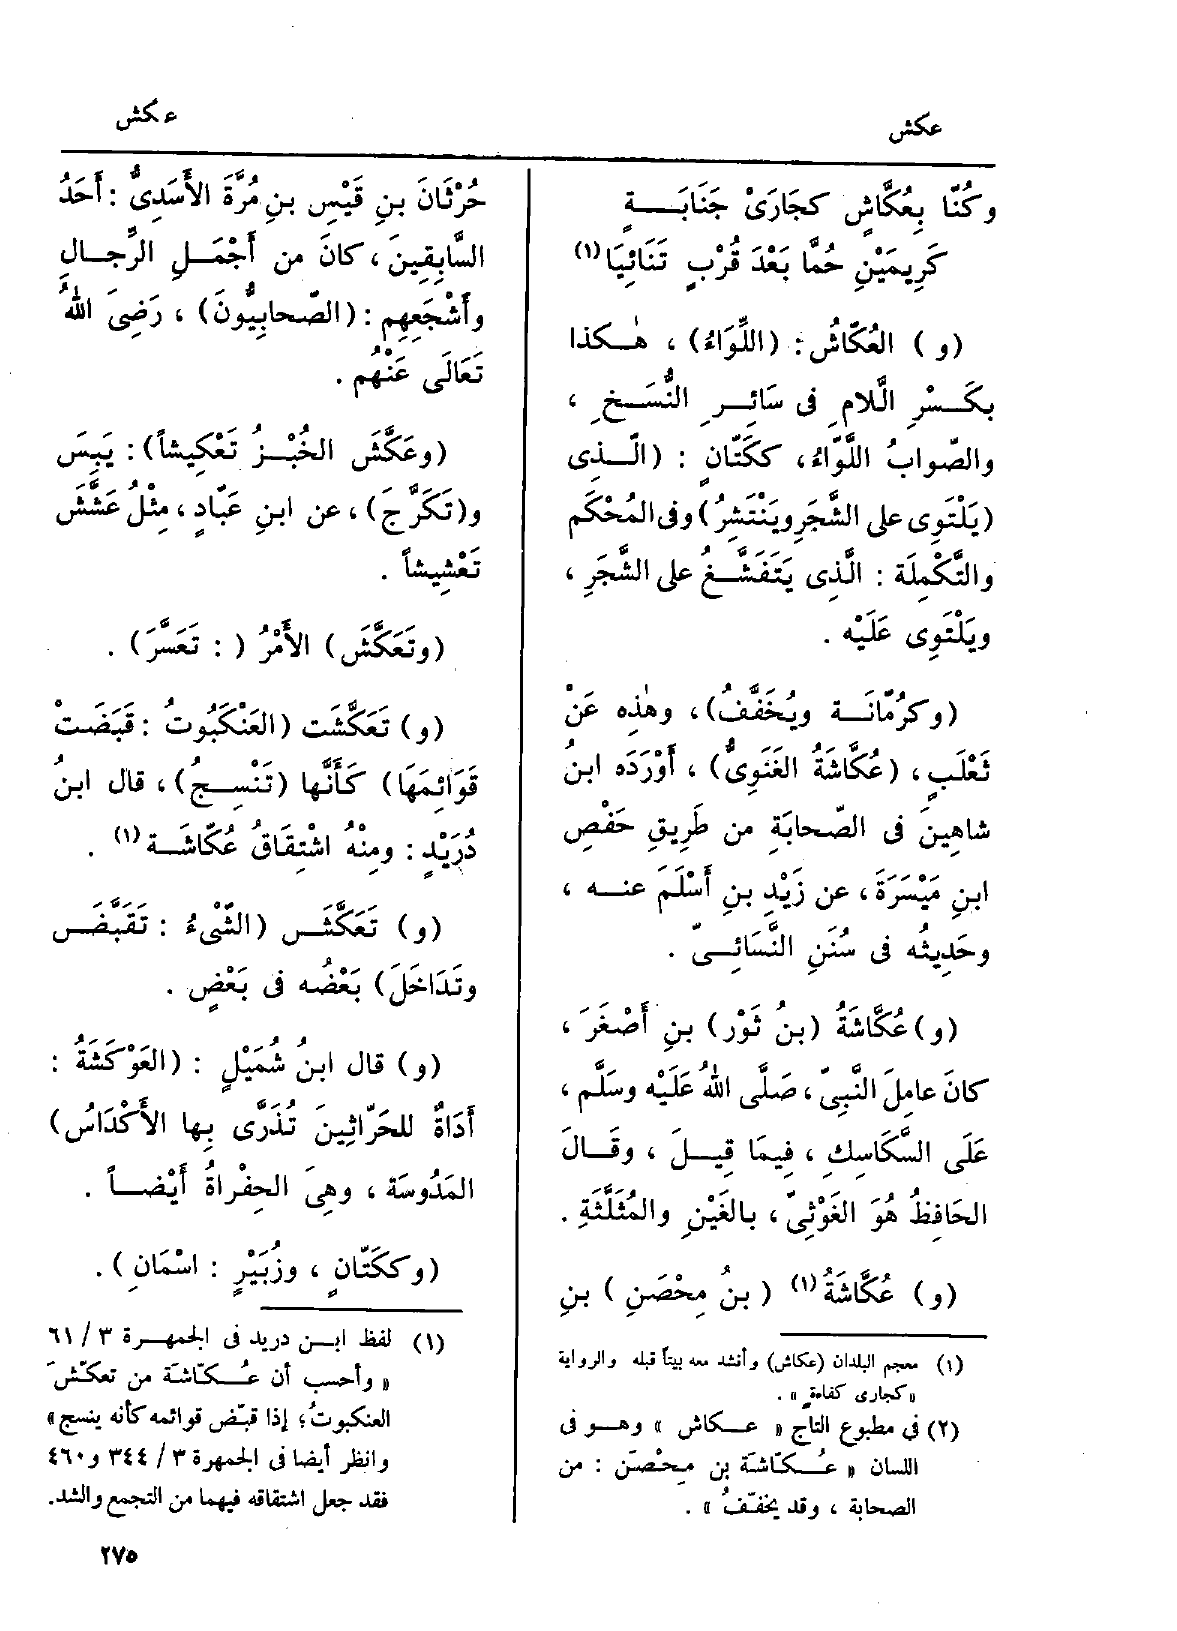 عكش
عكش
وكُنَّا بِعُكَّاشٍ كجَارَىْ جَنَابَـــةٍ
كَرِيمَيْنِ حُمَّا بَعْدَ قُرْبٍ تَنَائِيَا(١)
(و) العُكّاشُ: (اللِّوَاءُ)، هٰـكذا
بكَـسْرِ الَّلامِ فى سَائِـرِ النُّسَـخِ،
والصّوابُ اللَّوّاءُ، ككَتّانٍ: (الَّـذِى
يَلْتَوِى على الشَّجَرِ ويَنْتَشِرُ) وفى المُحْكَمِ
والتَّكْمِلَة: الَّذِى يَتَفَشَّـغُ على الشَّجَرِ،
ويَلْتَوِى عَلَيْه.
(وكرُمّانَـة ويُخَفَّفُ)، وهٰذِه عَنْ
ثَعْلَبٍ، (عُكَّاشَةُ الغَنَوِىُّ)، أَوْرَدَه ابنُ
شاهِينَ فى الصّحابَةِ من طَرِيقِ حَفْصِ
ابنِ مَيْسَرَةَ، عن زَيْدِ بنِ أَسْلَمَ عنـه،
وحَدِيثُه فى سُنَنِ النَّسَائِـىّ.
(و) عُكَّاشَةُ (بنُ ثَوْر) بنِ أَصْغَرَ،
كانَ عامِلَ النَّبِىّ، صَلَّى اللهُ عَلَيْه وسَلَّم،
عَلَى السَّكَاسِكِ، فِيمَا قِيـلَ، وقَـالَ
الحَافِظُ هُوَ الغَوْثِىّ، بالغَيْنِ والمُثَلَّثَةِ.
(و) عُكَّاشَةُ(١) (بنُ مِحْصَنِ) بنِ
(١) معجم البلدان (عكاش) وأنشد معه بيتاً قبله والرواية
«كجارى كفاءةٍ».
(٢) فى مطبوع التاج «عـكاش» وهـو فى
اللسان «عُـكّاشة بن مِحْصَن: من
الصحابة، وقد يخفّفُ».
حُرْثَانَ بنِ قَيْسِ بنِ مُرَّةَ الأَسَدِىُّ: أَحَدُ
السَّابِقِينَ، كانَ من أَجْمَـلِ الرِّجـالِ
وأَشْجَعِهِم: (الصّحابِيُّونَ)، رَضِىَ اللهُ
تَعَالَى عَنْهُم.
(وعَكَّشَ الخُبْـزُ تَعْكِيشاً): يَبِسَ
و(تَكَرَّجَ)، عن ابنِ عَبّادٍ، مِثْلُ عَشَّشَ
تَعْشِيشاً.
(وتَعَكَّشَ) الأَمْرُ (: تَعَسَّرَ).
(و) تَعَكَّشَت (العَنْكَبُوتُ: قَبَضَتْ
قَوَائِمَهَا) كَأَنَّها (تَنْسِـجُ)، قال ابنُ
دُرَيْدٍ: ومِنْهُ اشْتِقَاقُ عُكّاشَـة(١).
(و) تَعَكَّشَـ (الشَّىْءُ: تَقَبَّضَـ
وتَدَاخَلَ) بَعْضُه فى بَعْضٍ.
(و) قال ابنُ شُمَيْلٍ: (العَوْكَشَةُ:
أَدَاةٌ للحَرّاثِينَ تُذَرَّى بِها الأَكْدَاسُ)
المَدُوسَة، وهِىَ الحِفْراةُ أَيْضـاً.
(وككَتّانٍ، وزُبَيْرٍ: اسْمَانِ).
(١) لفظ ابـن دريد فى الجمهـرة ٣ / ٦١
«وأحسب أن عُـكاشة من تعكشَ
العنكبوتُ؛ إذا قبّض قوائمه كأنه ينسج»
وانظر أيضا فى الجمهرة ٣ / ٣٤٤ و٤٦٠
فقد جعل اشتقاقه فيهما من التجمع والشد.
٢٧٥